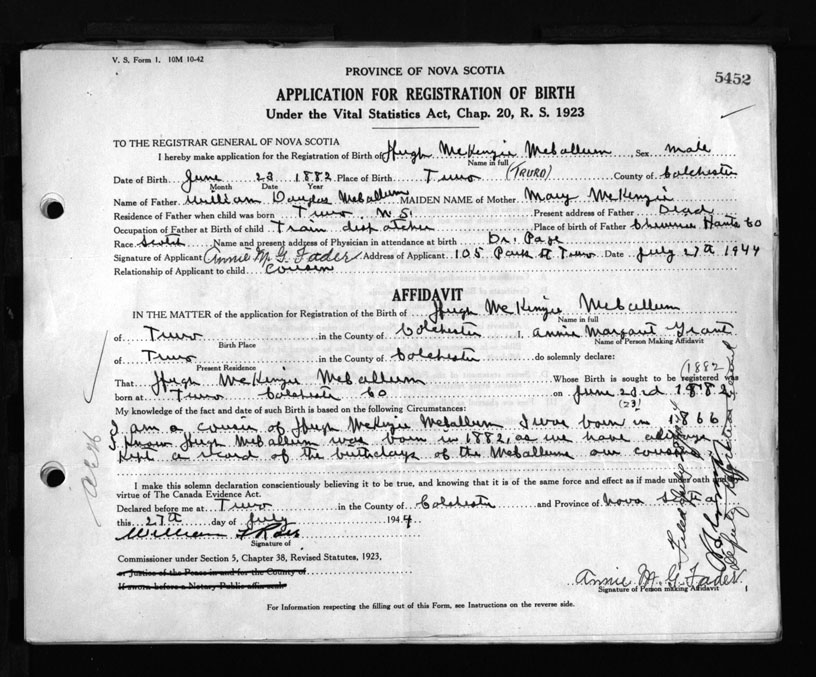 V. S. Form 1. 10M 10-42
PROVINCE OF NOVA SCOTIA
5452
APPLICATION FOR REGISTRATION OF BIRTH
Under the Vital Statistics Act, Chap. 20, R. S. 1923
TO THE REGISTRAR GENERAL OF NOVA SCOTIA
I hereby make application for the Registration of Birth of Hugh McKenzie McCallum, Sex male
Name in full
Date of Birth June 23 1882 Place of Birth Truro (TRURO) County of Colchester
Month Date Year
Name of Father William Douglas McCallum MAIDEN NAME of Mother Mary McKenzie
Residence of Father when child was born Truro N.S. Present address of Father Dead
Occupation of Father at Birth of child Train dispatcher Place of birth of Father Hants Co
Race Scotch Name and present address of Physician in attendance at birth Dr. Page
Signature of Applicant Annie M. G. Fader Address of Applicant 105 Park St Truro Date July 27th 1944
Relationship of Applicant to child cousin
AFFIDAVIT
IN THE MATTER of the application for Registration of the Birth of Hugh McKenzie McCallum
Name in full
of Truro in the County of Colchester I, Annie Margaret Grant
Birth Place Name of Person Making Affidavit
of Truro in the County of Colchester do solemnly declare:
Present Residence
(1882
That Hugh McKenzie McCallum Whose Birth is sought to be registered was
born at Truro Colchester Co on June 23rd 1882
(23)
My knowledge of the fact and date of such Birth is based on the following Circumstances:
I am a cousin of Hugh McKenzie McCallum I was born in 1866
I know Hugh McCallum was born in 1882 as we have always
kept a record of the birthdays of the McCallums our cousins
I make this solemn declaration conscientiously believing it to be true, and knowing that it is of the same force and effect as if made under oath and
virtue of The Canada Evidence Act.
Declared before me at Truro in the County of Colchester and Province of Nova Scotia
this 27th day of July 1944
William Ross
Signature of
Commissioner under Section 5, Chapter 38, Revised Statutes, 1923,
or Justice of the Peace in and for the County of
If sworn before a Notary Public affix seal
Annie M. G. Fader
Signature of Person making Affidavit
For Information respecting the filling out of this Form, see Instructions on the reverse side.
Deputy Registrar General